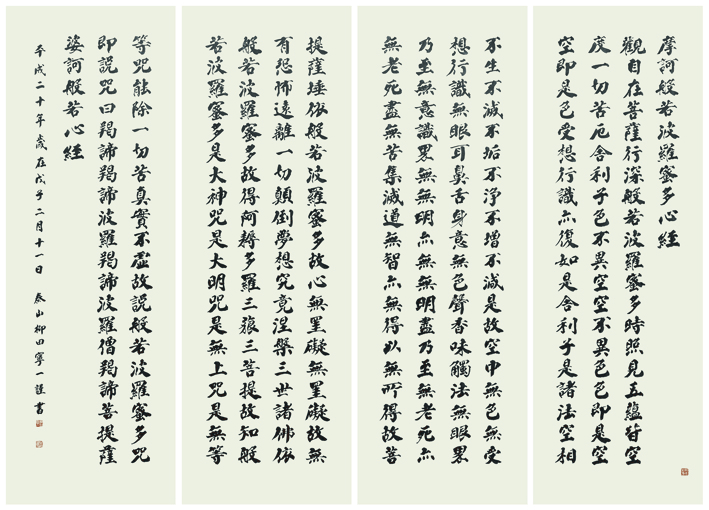 摩訶般若波羅蜜多心経
觀自在菩薩行深般若波羅蜜多時照見五蘊皆空
度一切苦厄舍利子色不異空空不異色色即是空
空即是色受想行識亦復如是舍利子是諸法空相
不生不滅不垢不浄不增不減是故空中無色無受
想行識無眼耳鼻舌身意無色聲香味觸法無眼界
乃至無意識界無無明亦無無明盡乃至無老死亦
無老死盡無苦集滅道無智亦無得以無所得故菩
提薩埵依般若波羅蜜多故心無罣礙無罣礙故無
有恐怖遠離一切顛倒夢想究竟涅槃三世諸佛依
般若波羅蜜多故得阿耨多羅三藐三菩提故知般
若波羅蜜多是大神咒是大明咒是無上咒是無等
等咒能除一切苦真實不虛故說般若波羅蜜多咒
即說咒曰羯諦羯諦波羅羯諦波羅僧羯諦菩提薩
婆訶般若心経
平成二十年歲在戊子二月十一日 泰山柳田寧一謹書